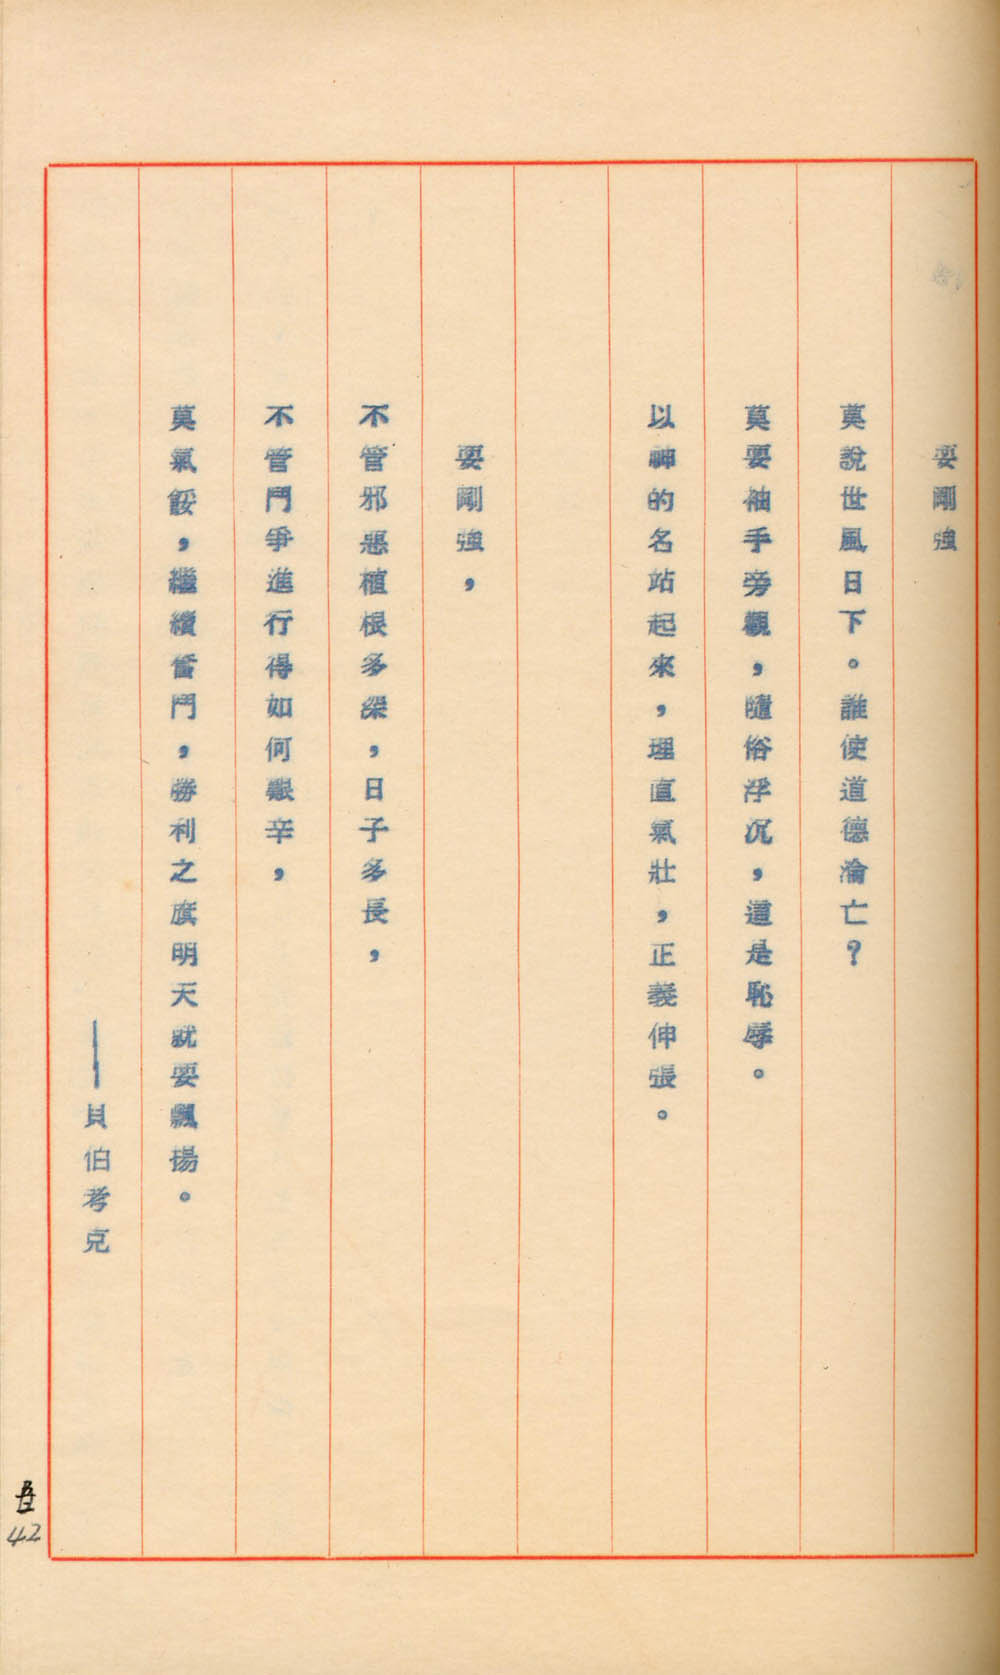 要剛強
莫說世風日下。誰使道德淪亡？
莫要袖手旁觀，隨俗浮沉，這是恥辱。
以神的名站起來，理直氣壯，正義伸張。
要剛強，
不管邪惡植根多深，日子多長，
不管鬥爭進行得如何艱辛，
莫氣餒，繼續奮鬥，勝利之旗明天就要飄揚。
——貝伯考克
42